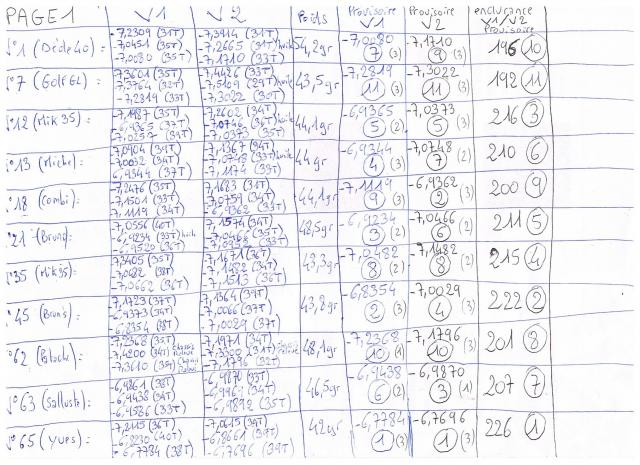 PAGE 1 V1 V2 Poids Provisoire V1 Provisoire V2 endurance V1/V2 Provisoire
N°1 (Dédé40) : -7,2309 (31T) -7,3914 (31T) 54,2gr -7,0080 (7) (3) -7,1710 (9) (3) 196 (10)
-7,0451 (35T) -7,2665 (31T) huile
-7,0080 (35T) -7,1710 (33T)
N°7 (Golf GL) -7,3601 (35T) -7,4426 (33T) 43,5gr -7,2819 (11) (3) -7,3022 (11) (3) 192 (11)
-7,3764 (32T) -7,5109 (29T) huile
-7,2819 (33T) -7,3022 (30T)
N°12 (Mik35) -7,1187 (35T) -7,2602 (34T) 44,1gr -6,9365 (5) (2) -7,0373 (5) (3) 216 (3)
-6,9365 (37T) -7,0746 (36T) huile
-7,0253 (34T) -7,0373 (35T)
N°13 (Miche) -7,0904 (34T) -7,1367 (34T) 44gr -6,9344 (4) (3) -7,0748 (7) (2) 210 (6)
-7,0032 (34T) -7,0748 (33T) huile
-6,9344 (37T) -7,1174 (33T)
N°18 (combi) -7,2476 (35T) -7,1683 (31T) 44,1gr -7,1119 (9) (3) -6,9362 (2) (3) 200 (9)
-7,1501 (33T) -7,0759 (34T)
-7,1119 (34T) -6,9362 (33T)
N°21 (Bruno) -7,0556 (40T) -7,1574 (34T) 48,5gr -6,9234 (3) (2) -7,0466 (6) (2) 211 (5)
-6,9234 (33T) huile -7,0466 (35T)
-6,9520 (36T)
N°35 (Mik35) -7,3405 (35T) -7,1671 (36T) 43,3gr -7,0482 (8) (2) -7,1482 (8) (2) 215 (4)
-7,0482 (38T) -7,1482 (34T)
-7,0662 (36T) -7,1513 (36T)
N°45 (Bruno) : -7,1723 (37T) -7,1364 (39T) 43,8gr -6,8354 (2) (3) -7,0029 (4) (3) 222 (2)
-6,9373 (34T) -7,0066 (37T)
-6,8354 (38T) -7,0029 (37T)
N°62 (Patoche) -7,2368 (35T) -7,1971 (34T) 48,1gr -7,2368 (10) (1) -7,1796 (10) (3) 201 (8)
-7,4200 (34T) -7,3308 (31T)
-7,3610 (35T) -7,1796 (32T)
N°63 (Salluste) : -6,9861 (38T) -6,9870 (33T) 46,5gr -6,9438 (6) (2) -6,9870 (3) (1) 207 (7)
-6,9438 (34T) -6,9962 (34T)
-6,9586 (33T) -6,9892 (35T)
N°65 (Yves) : -7,2115 (36T) -7,0615 (39T) 42gr -6,7784 (1) (3) -6,7696 (1) (3) 226 (1)
-6,8230 (40T) -6,8661 (39T)
-6,7784 (38T) -6,7696 (39T)